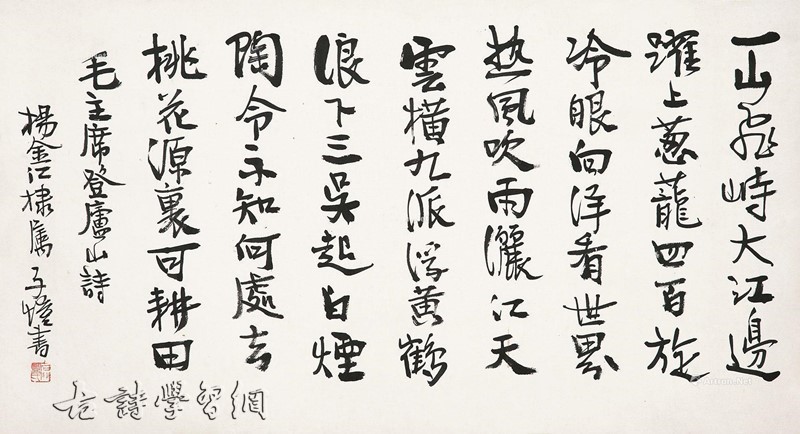 一山飛峙大江邊
躍上蔥蘢四百旋
冷眼向洋看世界
热風吹雨灑江天
雲橫九派浮黃鶴
浪下三吳起白煙
陶令不知何處去
桃花源裏可耕田
毛主席登廬山詩
楊金江棣屬 子愷書
古詩學習網